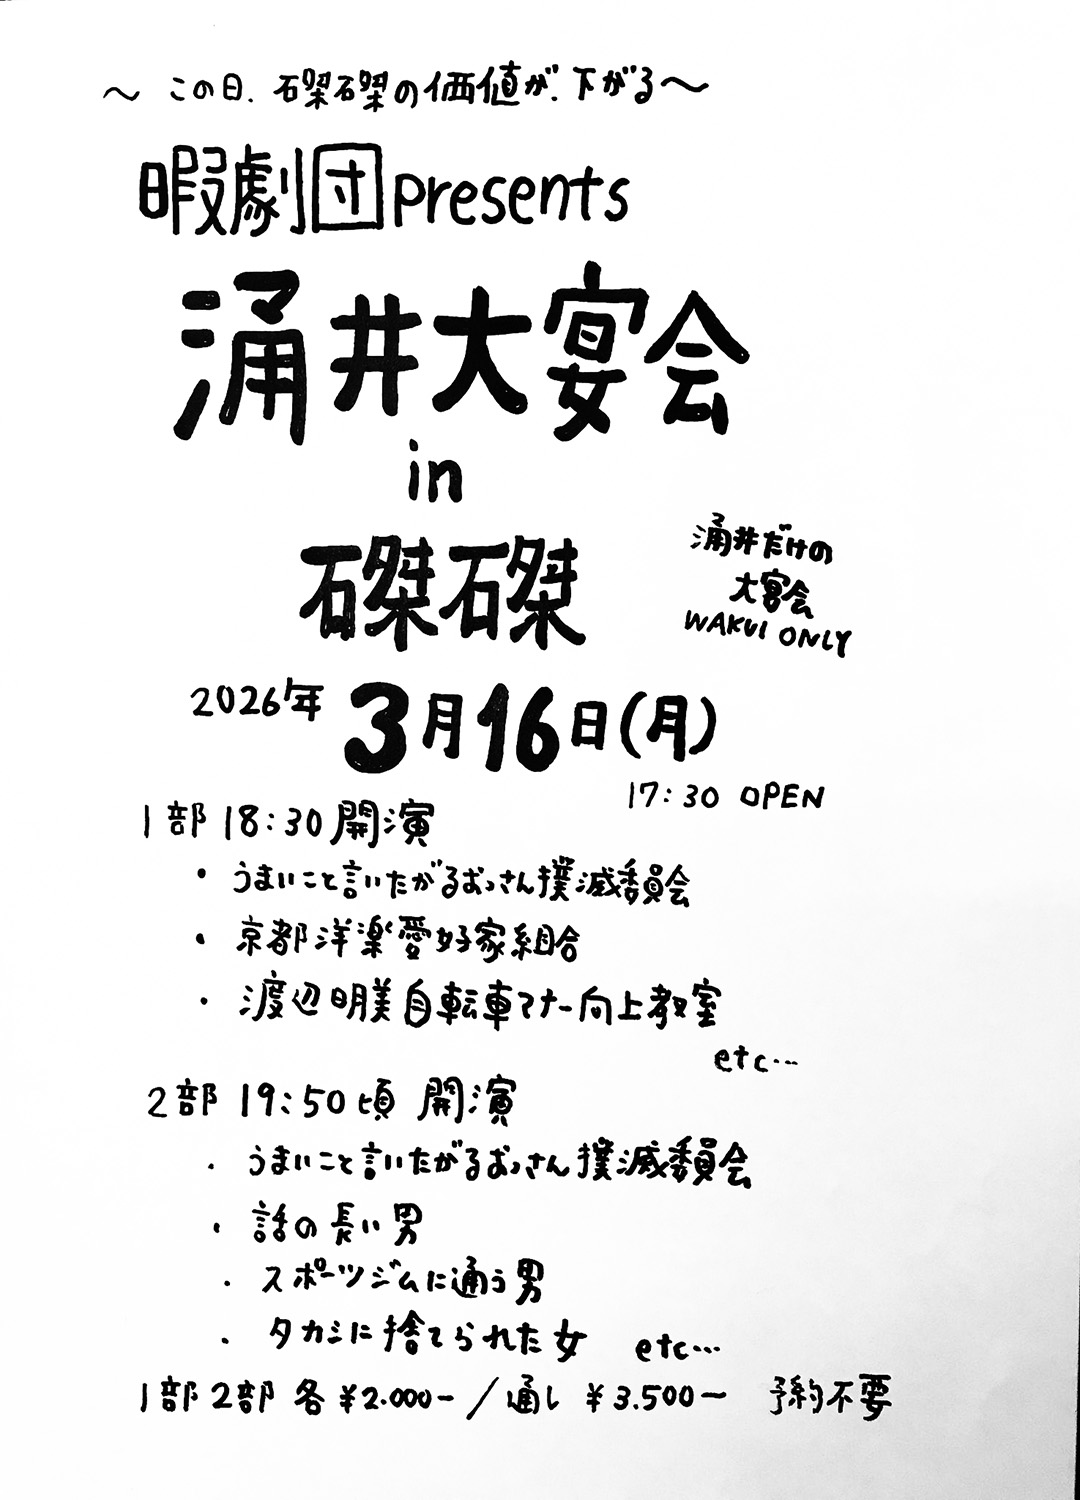 ～この日、磔磔の価値が、下がる～
暇劇団presents
涌井大宴会
in
磔磔
涌井だけの
大宴会
WAKUI ONLY
2026年 3月16日(月)
17:30 OPEN
1部 18:30 開演
・うまいこと言いたがるおっさん撲滅委員会
・京都洋楽愛好家組合
・渡辺明美自転車マナー向上教室
etc…
2部 19:50頃 開演
・うまいこと言いたがるおっさん撲滅委員会
・話の長い男
・スポーツジムに通う男
・タカシに捨てられた女 etc…
1部2部 各¥2.000-／通し ¥3.500－ 予約不要